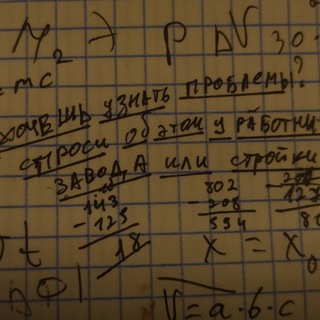 M₂ Э P ΔV 30
mc²
ХОЧЕШЬ УЗНАТЬ ПРОБЛЕМЫ?
СПРОСИ об этом у РАБОТНИ
ЗАВОДА или стройки
143
- 125
18
802
- 208
594
x = x₀
V = a · b · c